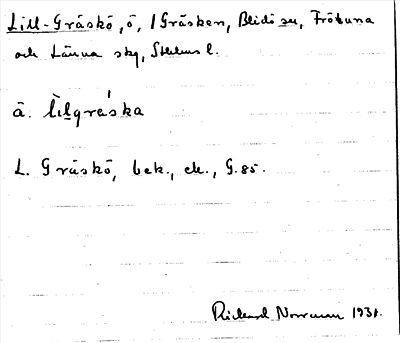 Lill-Gräskö, ö, i Gräsken, Blidö sn, Frötuna
och Länna skg, Sthlms l.
ä. lilgräska
L. Gräskö, bek., ek., G.85.
Rickard Norman 1931.